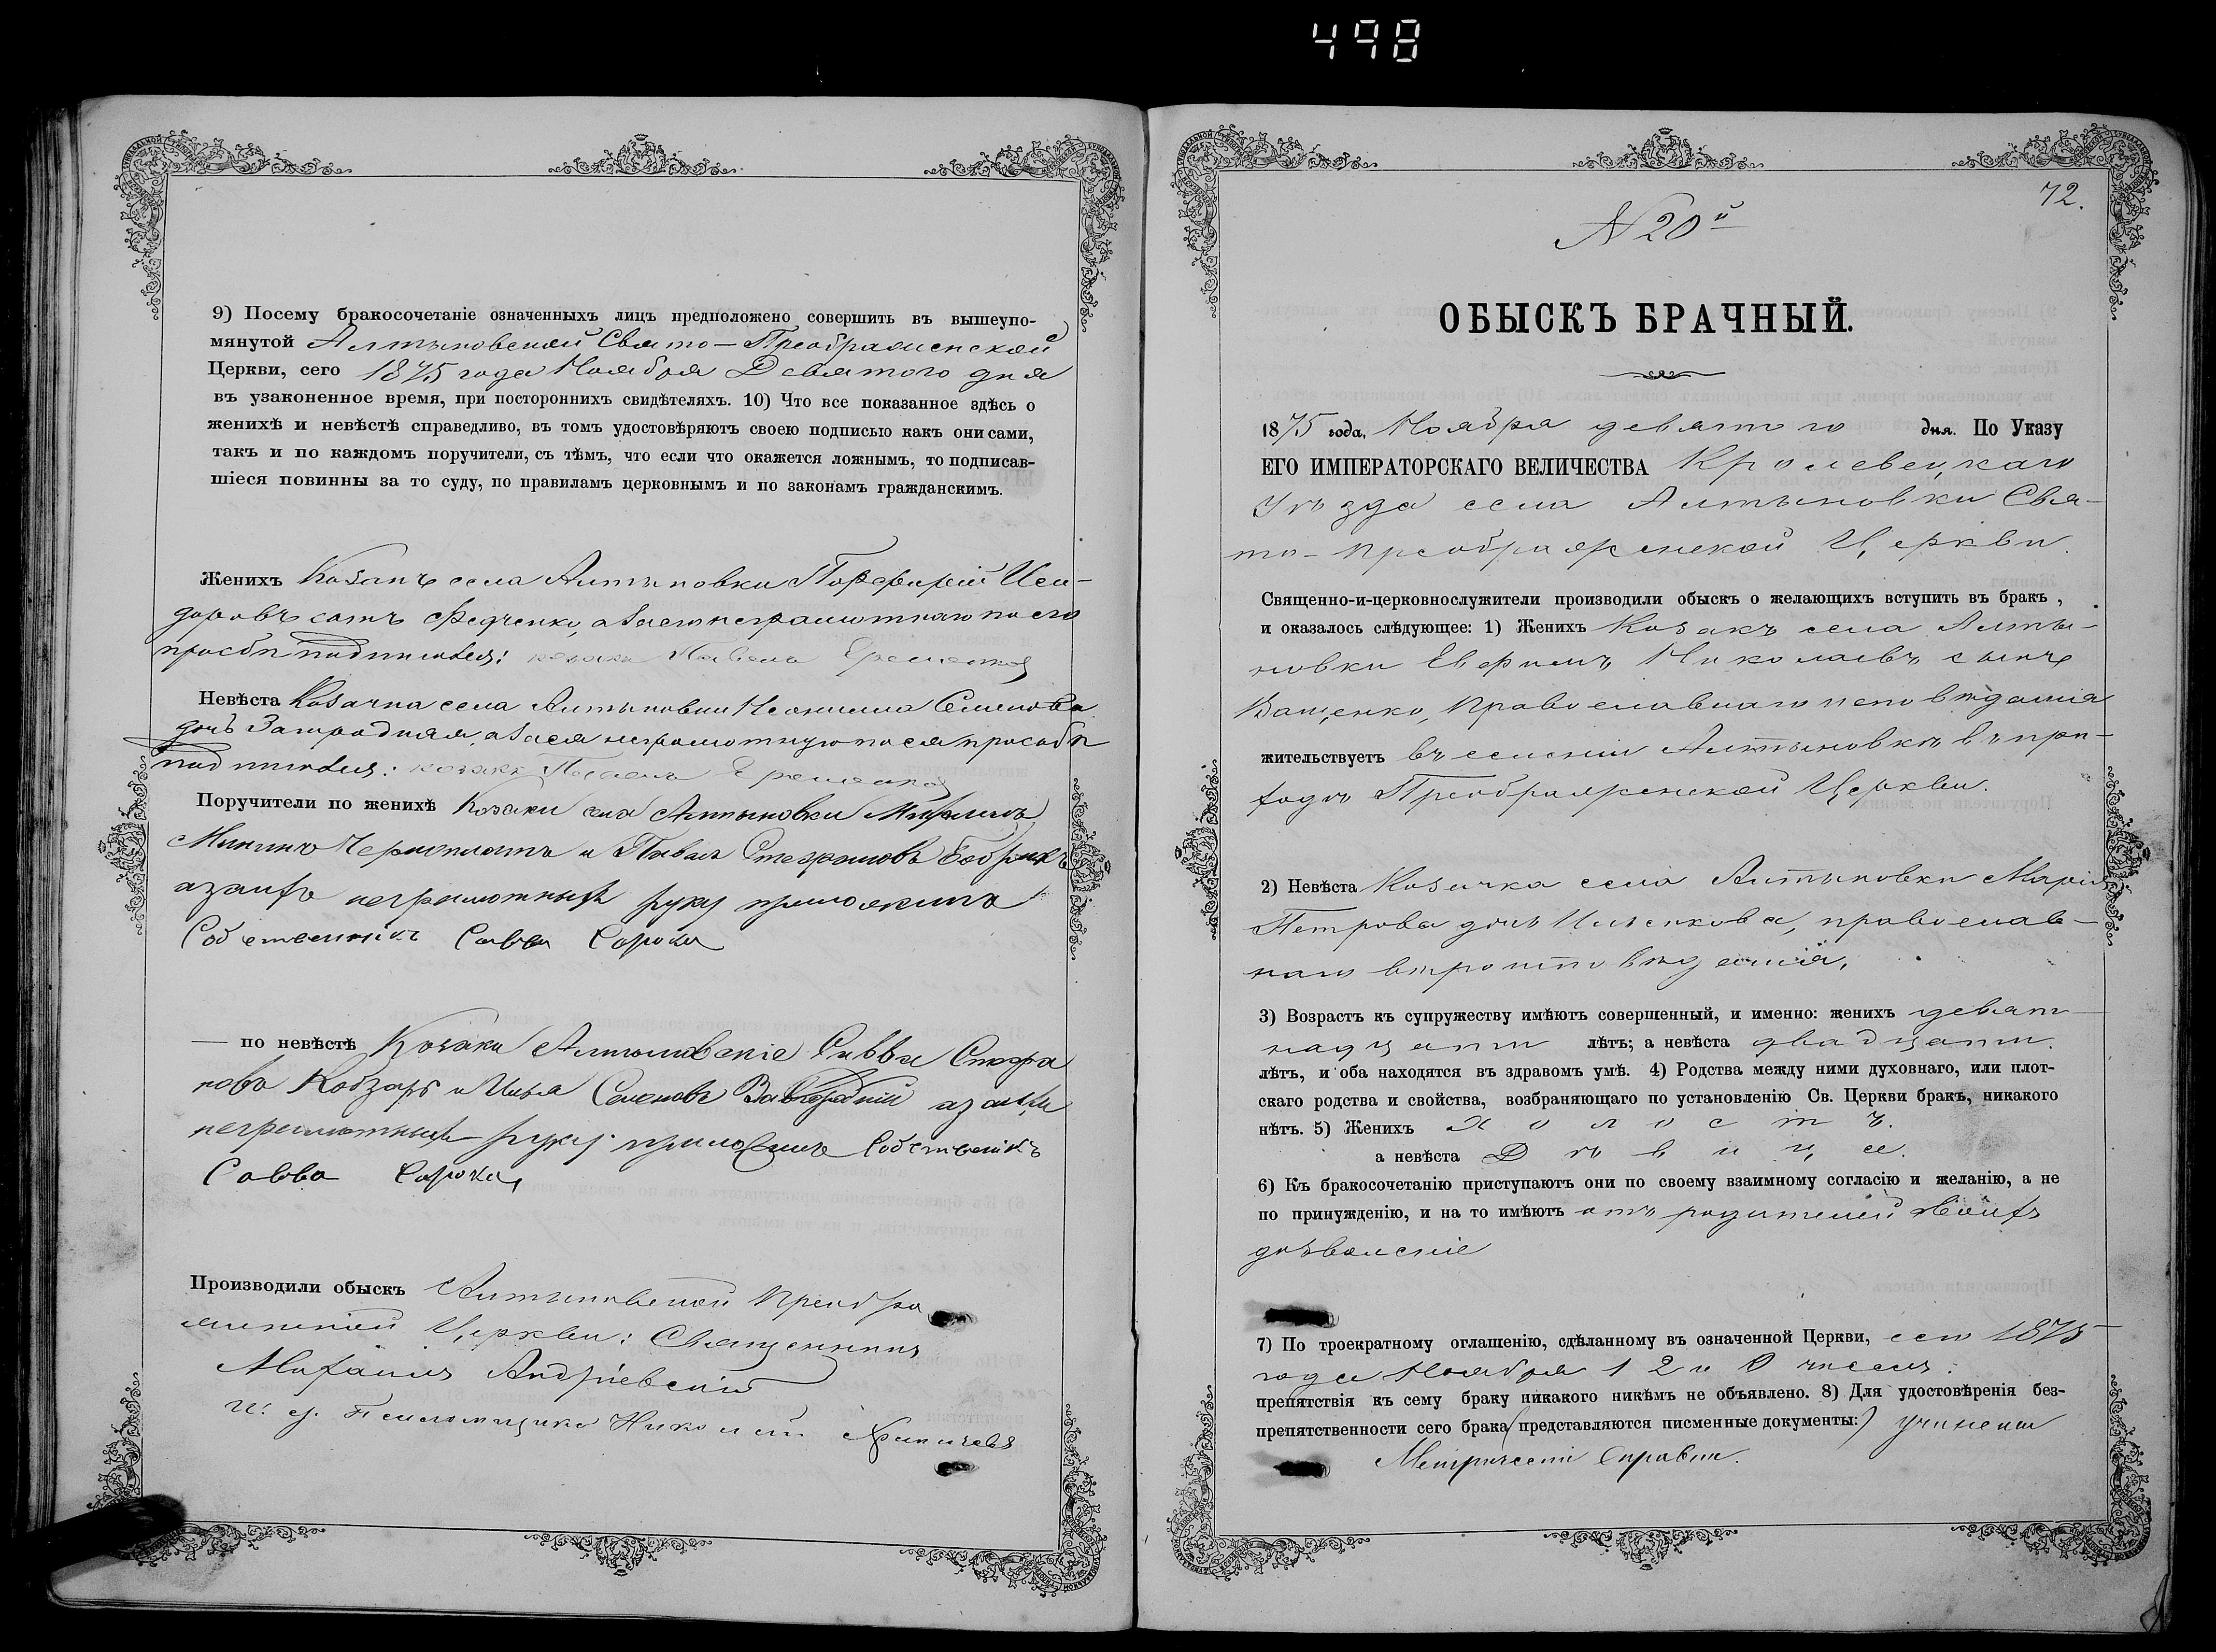 498
9) Посему бракосочетаніе означенныхъ лицъ предположено совершить въ вышеупо-
мянутой Алтыновской Свято-Преображенской
Церкви, сего 1875 года Ноября Девятого дня
въ узаконенное время, при постороннихъ свидѣтеляхъ. 10) Что все показанное здѣсь о
женихѣ и невѣстѣ справедливо, въ томъ удостовѣряютъ своею подписью какъ они сами,
такъ и по каждомъ поручители, съ тѣмъ, что если что окажется ложнымъ, то подписав-
шіеся повинны за то суду, по правиламъ церковнымъ и по законамъ гражданскимъ.
Женихъ Козакъ села Алтыновки Порфирій Иси-
доровъ сынъ Федченко, а за его неграмотнаго по его
просбѣ подписался: козакъ Павелъ Еременко
Невѣста Козачка села Алтыновки Неонила Семенова
дочь Загородняя, а за ся неграмотную по ея просьбѣ
подписался: козакъ Павелъ Еременко
Поручители по женихѣ Козаки села Алтыновки
и Павелъ Стефановъ Бобрикъ
а за ихъ неграмотныхъ руку приложилъ
Собственникъ Савва Сорока
— по невѣстѣ Козаки Алтыновскіе Савва Стефа
новъ Кобзарь и Илья Семеновъ а за ихъ
неграмотныхъ руку приложилъ Собственикъ
Савва Сорока
Производили обыскъ Алтыновской Преобра
женской Церкви: Священникъ
Михаилъ Андріевскій
И. д. Псаломщика Николай
72.
N 20й
ОБЫСКЪ БРАЧНЫЙ.
1875 года, Ноября девятого дня. По Указу
ЕГО ИМПЕРАТОРСКАГО ВЕЛИЧЕСТВА Кролевецкаго
Уѣзда села Алтыновки Свя-
то-Преображенской Церкви.
Священно-и-церковнослужители производили обыскъ о желающихъ вступить въ бракъ,
и оказалось слѣдующее: 1) Женихъ Козакъ села Алты-
новки Евфимъ Николаевъ сынъ
Ващенко, православнаго исповѣданія
жительствуетъ въ селеніи Алтыновкѣ въ при-
ходѣ Преображенской Церкви.
2) Невѣста Козачка села Алтыновки Марія
Петрова дочь Ильенкова, православ-
наго вѣроисповѣданія,
3) Возрастъ къ супружеству имѣютъ совершенный, и именно: женихъ девят-
надцати лѣтъ; а невѣста двадцати
лѣтъ, и оба находятся въ здравомъ умѣ. 4) Родства между ними духовнаго, или плот-
скаго родства и свойства, возбраняющаго по установленію Св. Церкви бракъ, никакого
нѣтъ. 5) Женихъ Холостъ.
а невѣста Дѣвица.
6) Къ бракосочетанію приступаютъ они по своему взаимному согласію и желанію, а не
по принужденію, и на то имѣютъ отъ родителей своихъ
дозволеніе
7) По троекратному оглашенію, сдѣланному въ означенной Церкви, сего 1875
года Ноября 1 2 и 8 числъ:
препятствія къ сему браку никакого никѣмъ не объявлено. 8) Для удостовѣренія без-
препятственности сего брака (представляются писменные документы:) учинены
Метрическіи Справки.